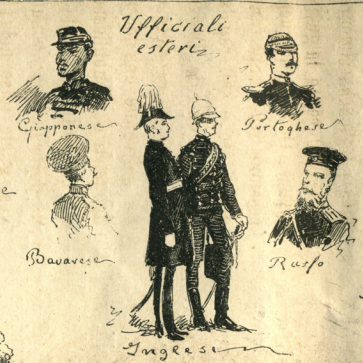 Ufficiali
esteri
Giapponese
Portoghese
Bavarese
Russo
Inglesi